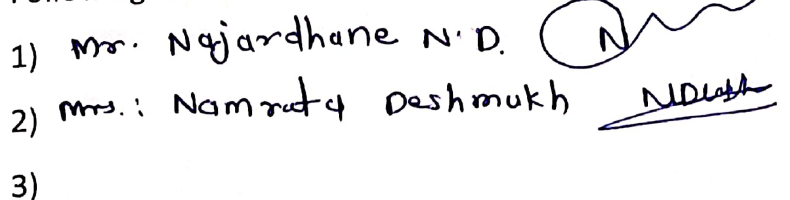 1) Mr. Najardhane N.D.
2) Mrs.: Namrata Deshmukh
3)